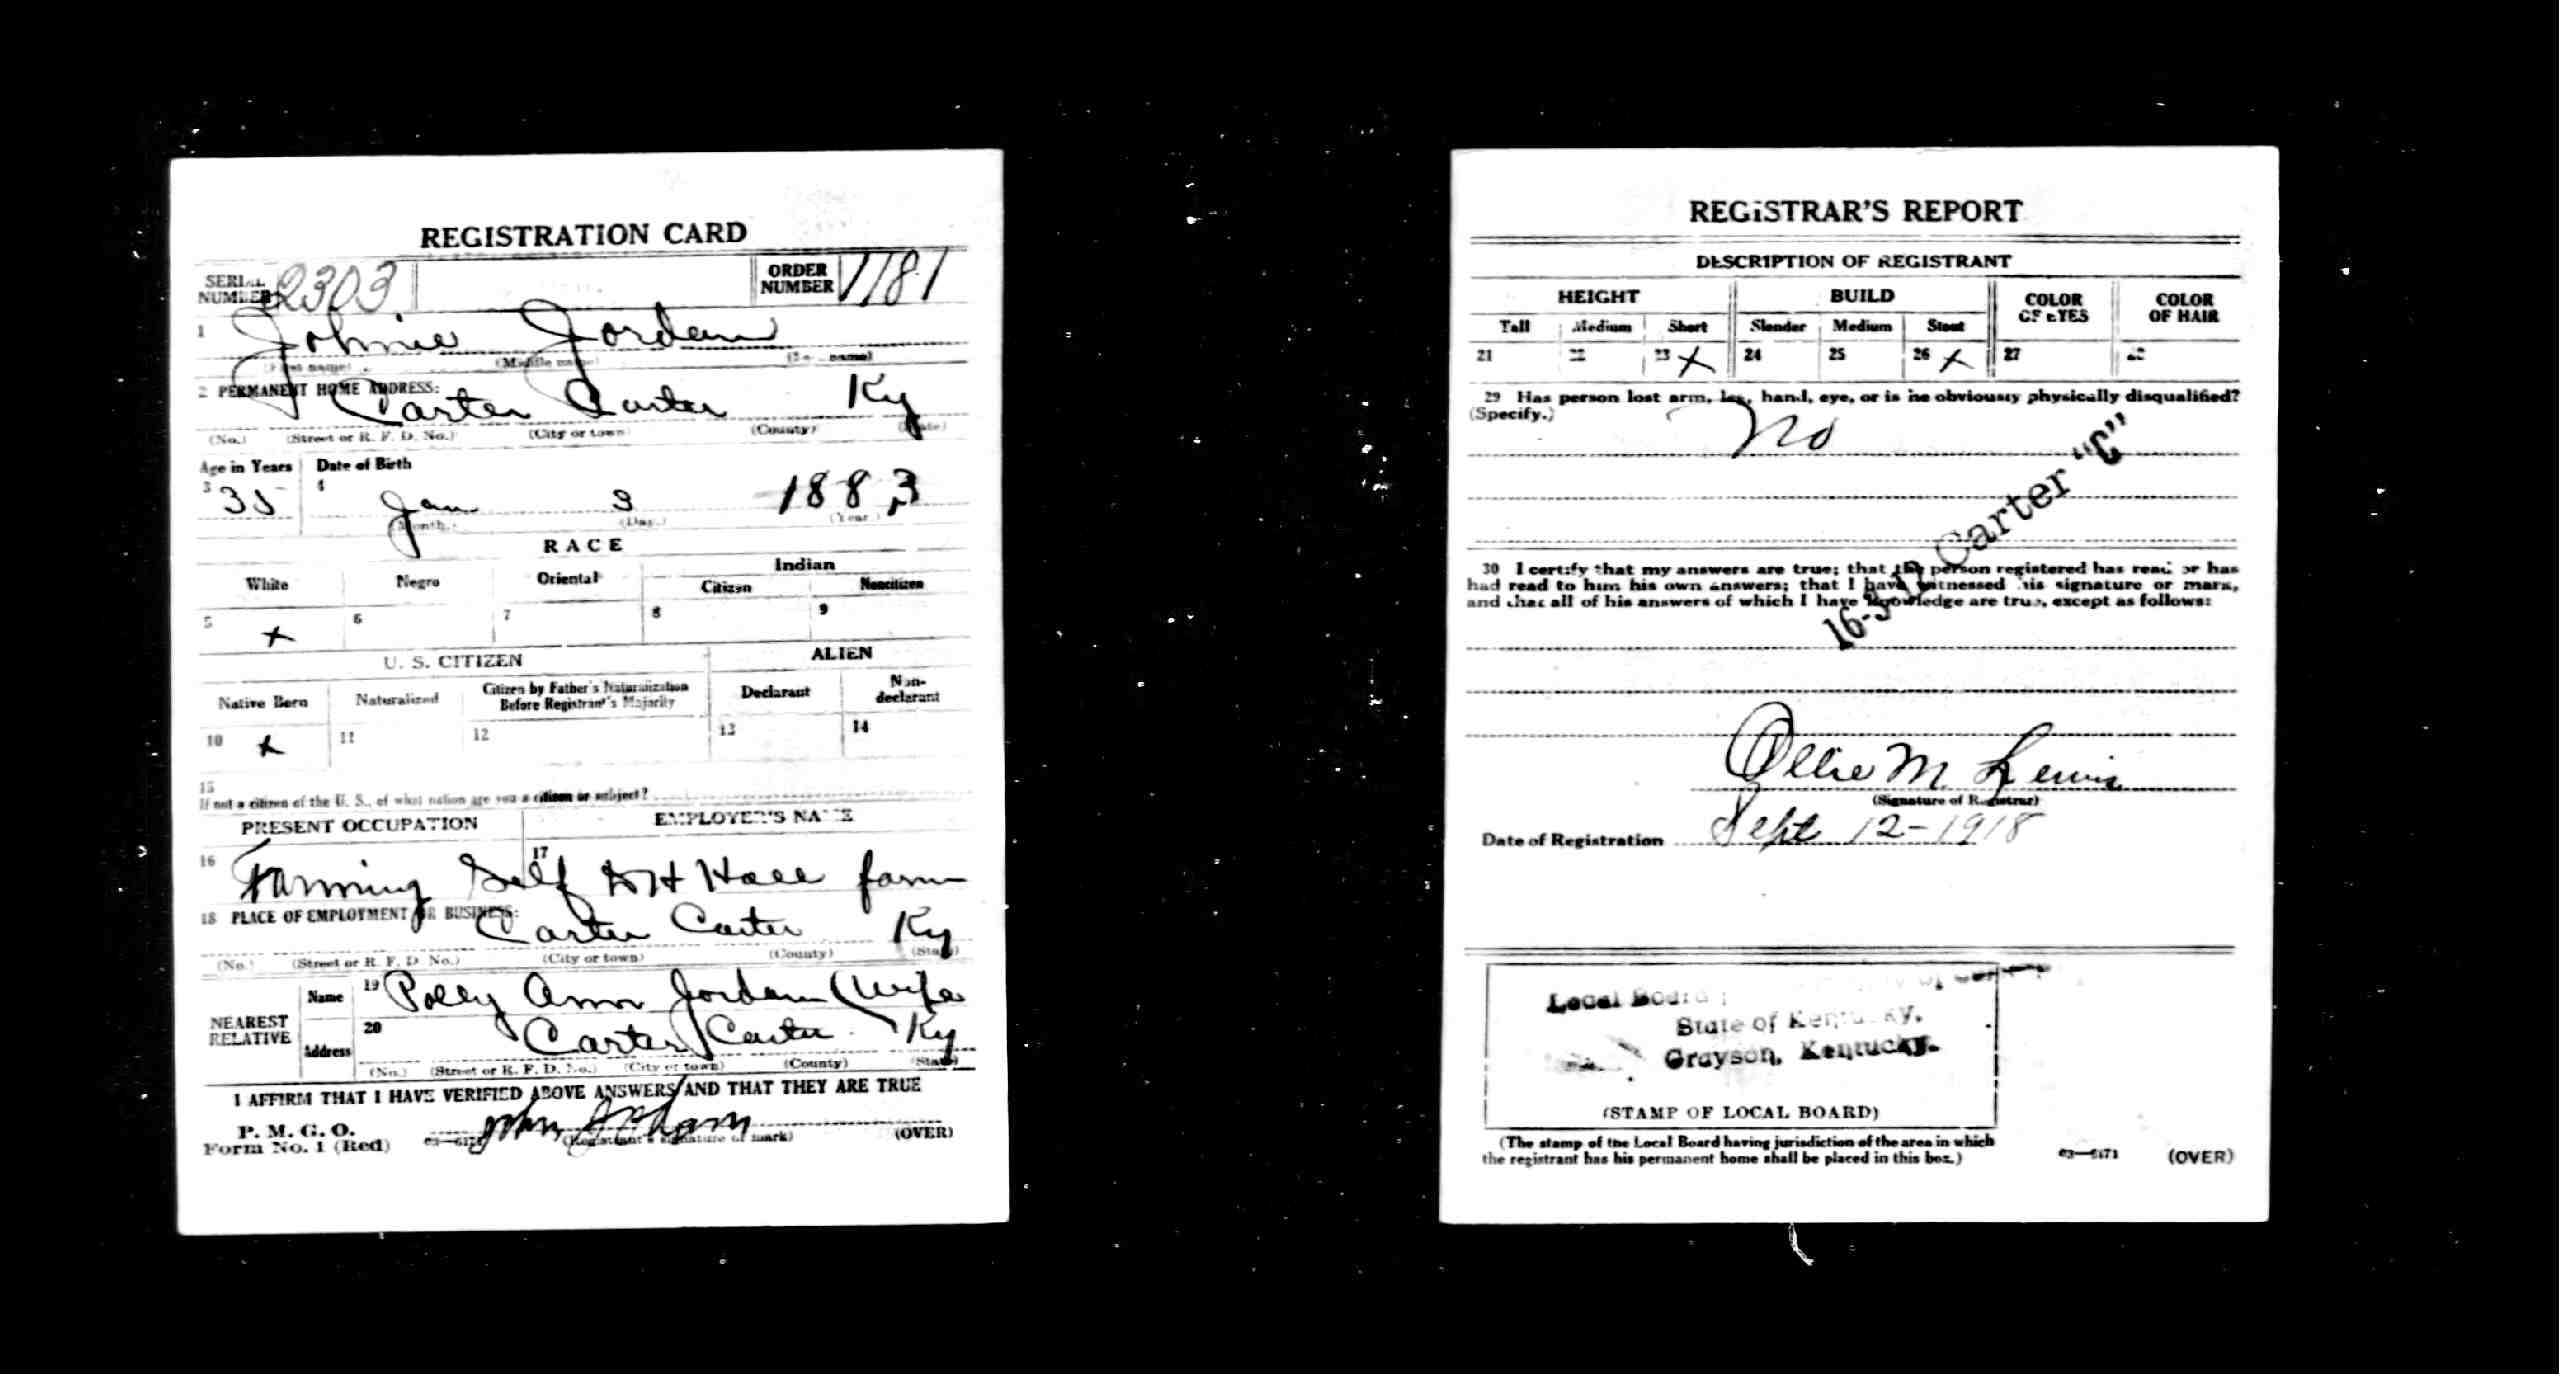 REGISTRATION CARD
SERIAL NUMBER 2303 ORDER NUMBER 1181
1 Johnie Jordan
(First name) (Middle name) (Last name)
2 PERMANENT HOME ADDRESS:
Carter Carter Ky
(No.) (Street or R. F. D. No.) (City or town) (County) (State)
Age in Years Date of Birth
3 35 4 Jan 3 1883
(Month.) (Day.) (Year.)
RACE
White Negro Oriental Indian
Citizen Noncitizen
5 x 6 7 8 9
U. S. CITIZEN ALIEN
Native Born Naturalized Citizen by Father's Naturalization Before Registrant's Majority Declarant Non-declarant
10 x 11 12 13 14
15
If not a citizen of the U. S., of what nation are you a citizen or subject?
PRESENT OCCUPATION EMPLOYER'S NAME
16 Farming 17 Self Hall farm
18 PLACE OF EMPLOYMENT OR BUSINESS:
Carter Carter Ky
(No.) (Street or R. F. D. No.) (City or town) (County) (State)
NEAREST RELATIVE Name 19 Polly Ann Jordan (Wife
Address 20 Carter Carter Ky
(No.) (Street or R. F. D. No.) (City or town) (County) (State)
I AFFIRM THAT I HAVE VERIFIED ABOVE ANSWERS AND THAT THEY ARE TRUE
P. M. G. O.
Form No. 1 (Red) 03—6171 John (Registrant's signature or mark) (OVER)
REGISTRAR'S REPORT
DESCRIPTION OF REGISTRANT
HEIGHT BUILD COLOR OF EYES COLOR OF HAIR
Tall Medium Short Slender Medium Stout
21 22 23 x 24 25 26 x 27 28
29 Has person lost arm, leg, hand, eye, or is he obviously physically disqualified?
(Specify.) No
30 I certify that my answers are true; that the person registered has read or has
had read to him his own answers; that I have witnessed his signature or mark,
and that all of his answers of which I have knowledge are true, except as follows:
Carter "C"
Ollie M Lewis
(Signature of Registrar)
Date of Registration Sept 12-1918
Local Board
State of Kentucky.
Grayson, Kentucky.
(STAMP OF LOCAL BOARD)
(The stamp of the Local Board having jurisdiction of the area in which
the registrant has his permanent home shall be placed in this box.)
03—6171 (OVER)